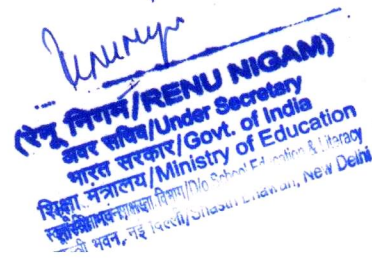 (रेनू निगम/RENU NIGAM)
अवर सचिव/Under Secretary
भारत सरकार/Govt. of India
शिक्षा मंत्रालय/Ministry of Education
विभाग/D/o School Education & Literacy
भवन, नई दिल्ली/Shastri Bhawan, New Delhi